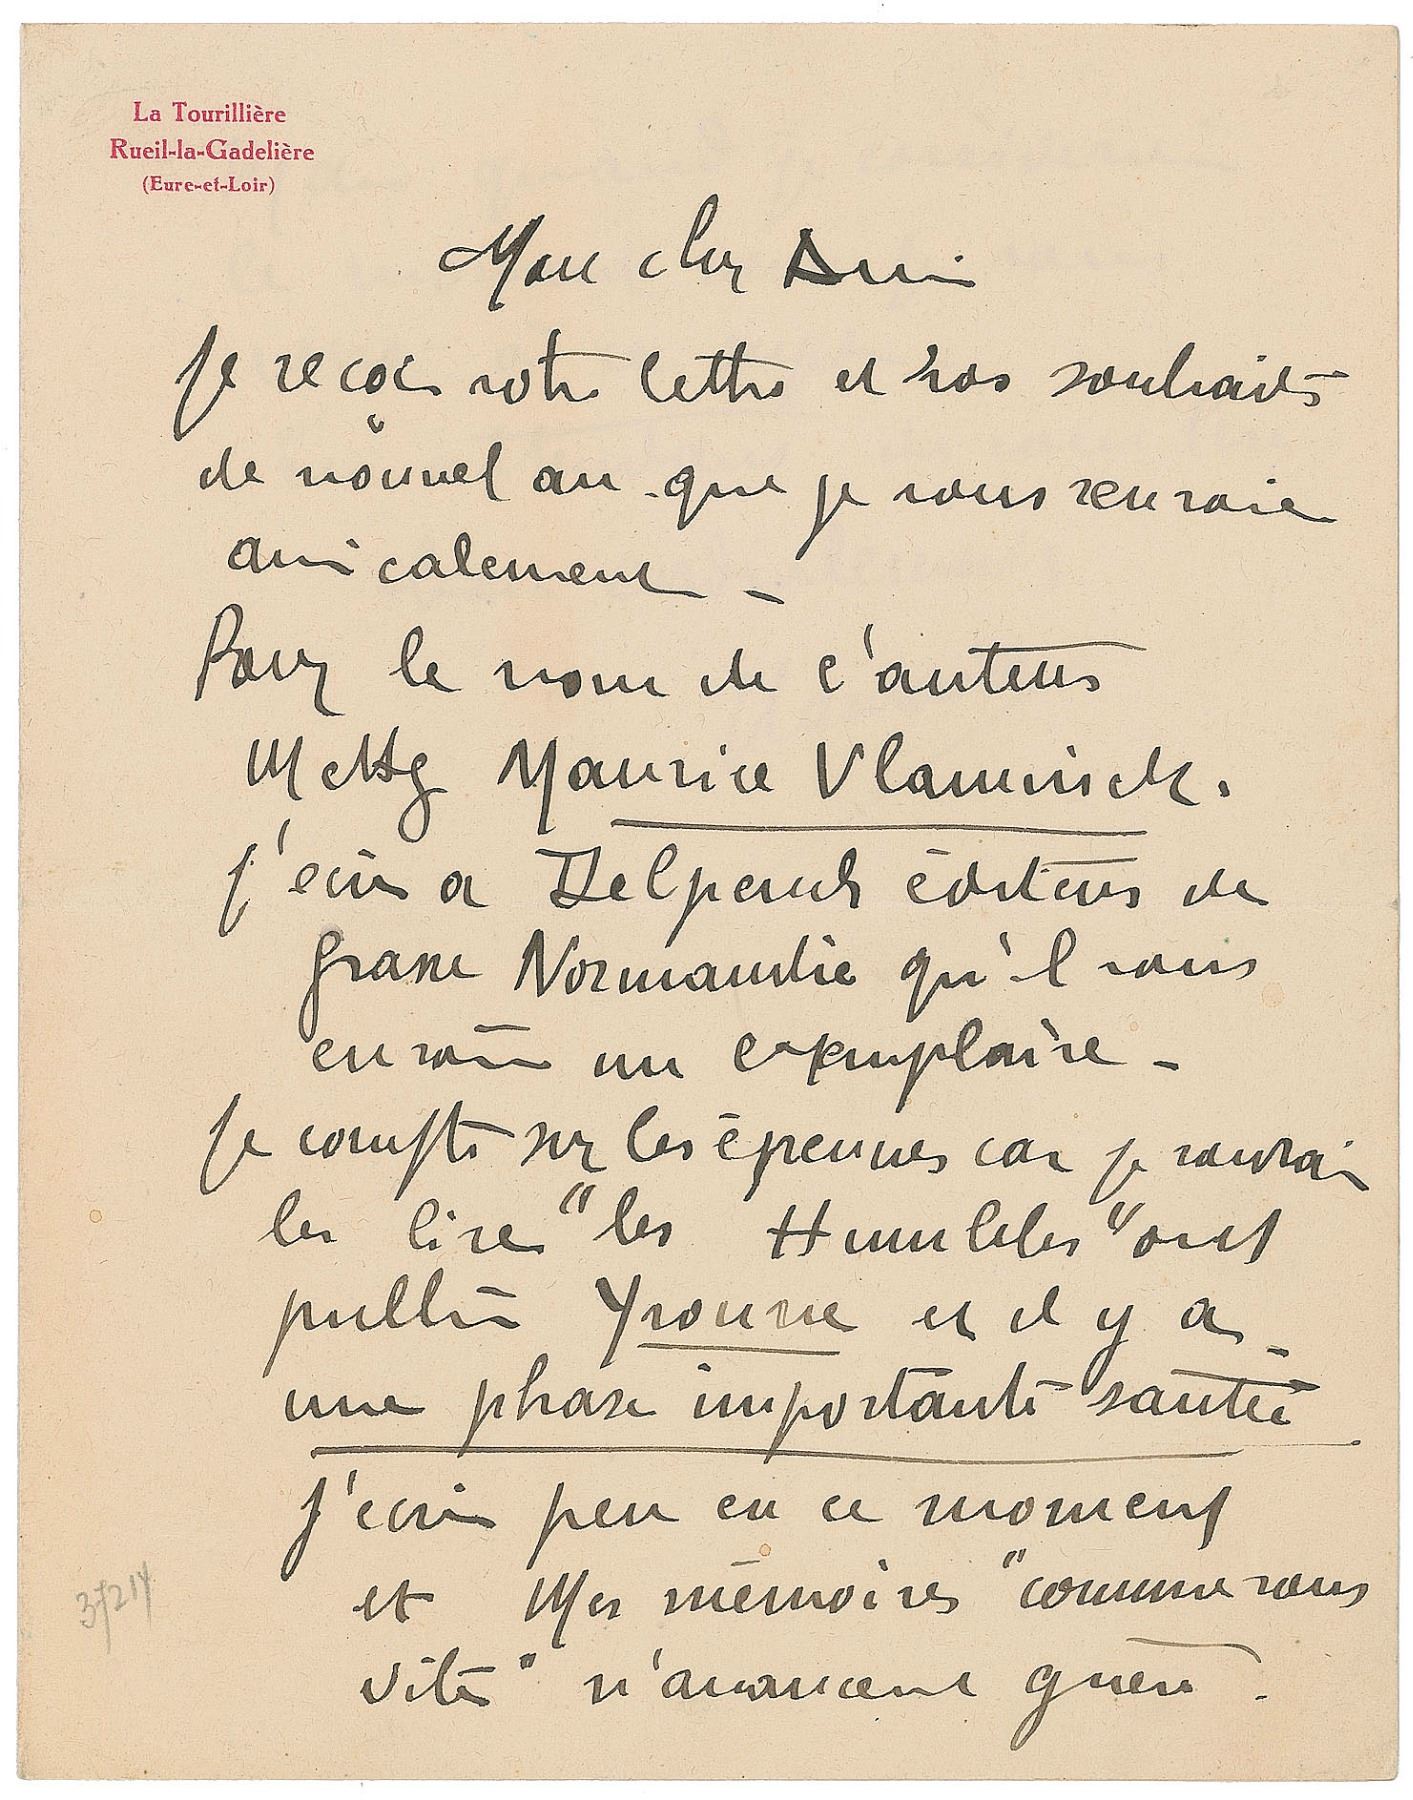 La Tourillière
Rueil-la-Gadelière
(Eure-et-Loir)
Mon cher Ami
Je reçois votre lettre et vos souhaits
de nouvel an que je vous renvoie
amicalement -
Pour le nom de l'auteur
Mettez Maurice Vlaminck.
J'écris a Delpeuch éditeur de
grasse Normandie qu'il vous
envoie un exemplaire -
Je compte sur les épreuves car je voudrai
les lire "les Humbles" ont
publié Yvonne et il y a
une phrase importante sautée
J'écris peu en ce moment
et Mes mémoires "comme vous
dites" n'avancent guère.
37214